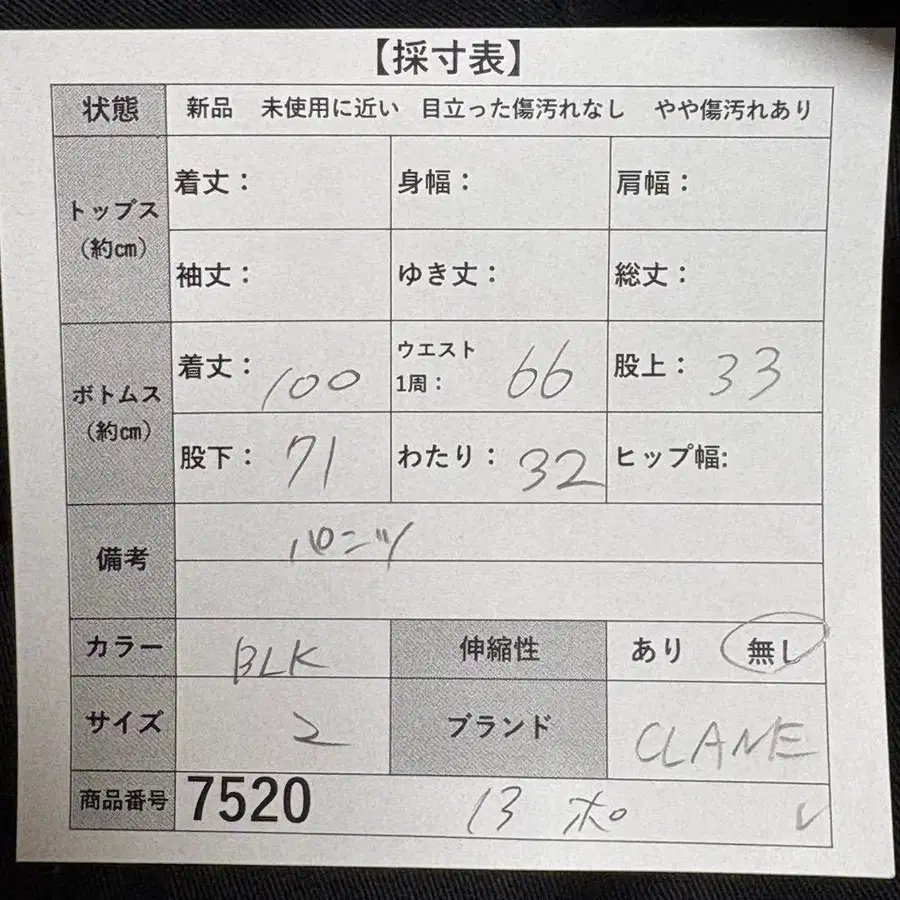 【採寸表】
状態 新品 未使用に近い 目立った傷汚れなし やや傷汚れあり
トップス
(約㎝)
着丈： 身幅： 肩幅：
袖丈： ゆき丈： 総丈：
ボトムス
(約㎝)
着丈： 100 ウエスト1周： 66 股上： 33
股下： 71 わたり： 32 ヒップ幅:
備考 パンツ
カラー BLK 伸縮性 あり 無し
サイズ 2 ブランド CLANE
商品番号 7520 13 ポ